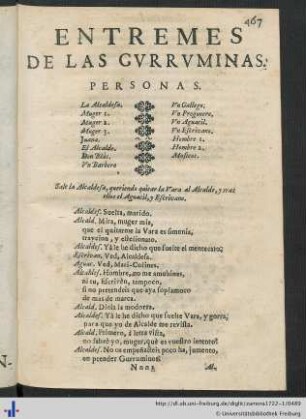 467
ENTREMES
DE LAS GVRRVMINAS.
PERSONAS.
La Alcaldesa. Vn Gallego.
Muger 1. Vn Pregonero.
Muger 2. Vn Aguacil.
Muger 3. Vn Escrivano.
Juana. Hombre 1.
El Alcalde. Hombre 2.
Don Blàs. Musicos.
Vn Barbero
Sale la Alcaldesa, queriendo quitar la Vara al Alcalde, y tras
ellos el Aguacil, y Escrivano.
Alcaldes. Suelta, marido.
Alcald. Mira, muger mia,
que el quitarme la Vara es
travesion, y
Alcaldes. Yà le he dicho que suelte el mentecato;
Escrivan. Ved, Alcaldesa.
Aguac. Ved, Mari-Colines.
Alcaldes. Hombre, no me amohines,
ni tu, Escrivàn, tampoco,
si no pretendeis que aya soplamoco
de mas de marca.
Alcald. Dinla la modorra.
Alcaldes. Yà le he dicho que suelte Vara, y gorra,
para que yo de Alcalde me revista.
Alcald. Primero, à letra vista,
no sabrè yo, muger, què es vuestro intento?
Alcaldes. No os empuñasteis poco ha, jumento,
en prender Gurruminos?
Nnn 3 Al-
N-
http://dl.ub.uni-freiburg.de/diglit/zamora1722-1/0489
© Universitätsbibliothek Freiburg